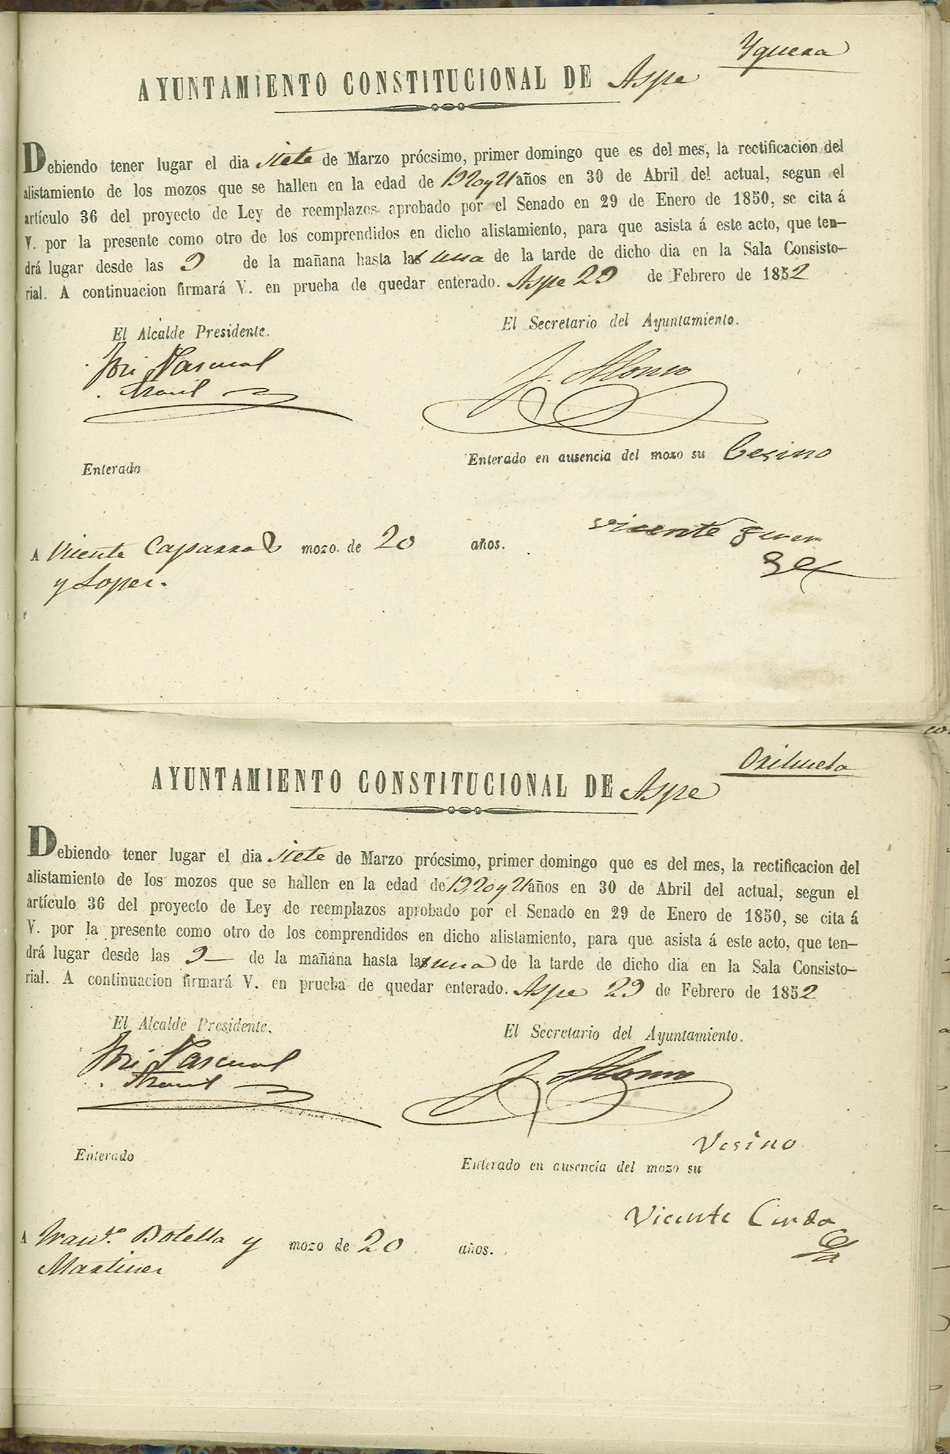 Yguera
AYUNTAMIENTO CONSTITUCIONAL DE Aspe
Debiendo tener lugar el dia siete de Marzo prócsimo, primer domingo que es del mes, la rectificacion del
alistamiento de los mozos que se hallen en la edad de 19 20 y 21 años en 30 de Abril del actual, segun el
artículo 36 del proyecto de Ley de reemplazos aprobado por el Senado en 29 de Enero de 1850, se cita á
V. por la presente como otro de los comprendidos en dicho alistamiento, para que asista á este acto, que ten-
drá lugar desde las 9 de la mañana hasta la una de la tarde de dicho dia en la Sala Consisto-
rial. A continuacion firmará V. en prueba de quedar enterado. Aspe 29 de Febrero de 1852
El Alcalde Presidente.
El Secretario del Ayuntamiento.
José Pascual
J. Alonso
Enterado
Enterado en ausencia del mozo su Vesino
Vicente
A Vicente Caparros mozo de 20 años.
y Lopez.
Orihuela
AYUNTAMIENTO CONSTITUCIONAL DE Aspe
Debiendo tener lugar el dia siete de Marzo prócsimo, primer domingo que es del mes, la rectificacion del
alistamiento de los mozos que se hallen en la edad de 19, 20 y 21 años en 30 de Abril del actual, segun el
artículo 36 del proyecto de Ley de reemplazos aprobado por el Senado en 29 de Enero de 1850, se cita á
V. por la presente como otro de los comprendidos en dicho alistamiento, para que asista á este acto, que ten-
drá lugar desde las 9 de la mañana hasta la una de la tarde de dicho dia en la Sala Consisto-
rial. A continuacion firmará V. en prueba de quedar enterado. Aspe 29 de Febrero de 1852
El Alcalde Presidente.
El Secretario del Ayuntamiento.
José Pascual
J. Alonso
Vesino
Enterado
Enterado en ausencia del mozo su
Vicente Cerda
A Franco. Botella y mozo de 20 años.
Martinez